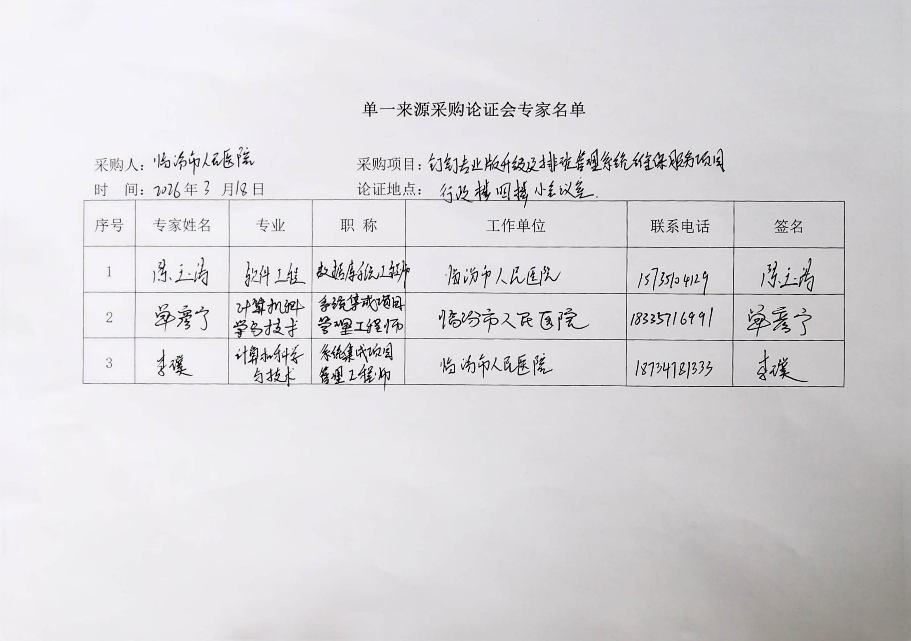 单一来源采购论证会专家名单
采购人：临汾市人民医院 采购项目：钉钉专业版升级及排班管理系统维保服务项目
时 间：2026年3月18日 论证地点：行政楼四楼小会议室
序号 专家姓名 专业 职 称 工作单位 联系电话 签名
1 陈玉涛 软件工程 数据库系统工程师 临汾市人民医院 15735104129 陈玉涛
2 单彦宁 计算机科学与技术 系统集成项目管理工程师 临汾市人民医院 18335716991 单彦宁
3 李璞 计算机科学与技术 系统集成项目管理工程师 临汾市人民医院 18734781333 李璞